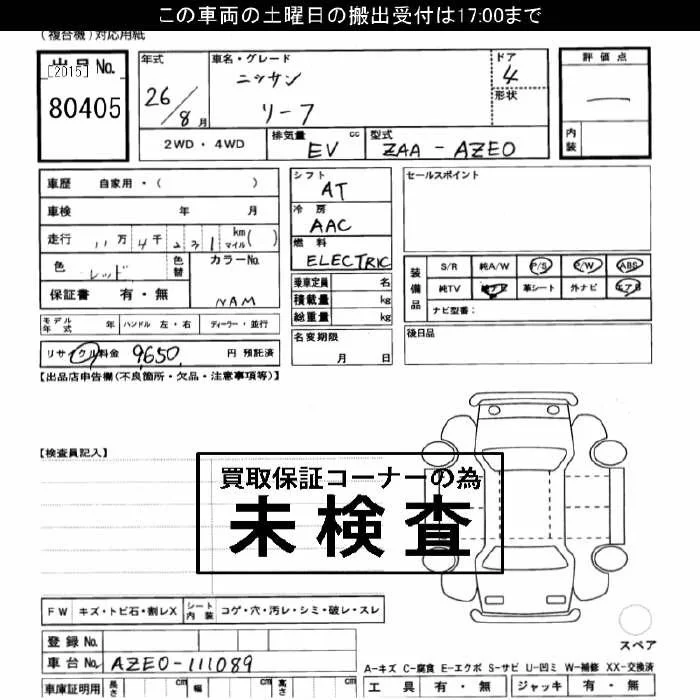 この車両の土曜日の搬出受付は17:00まで
(複合機)対応用紙
出品No.
[2015]
80405
年式
26/8月
車名・グレード
ニッサン
リーフ
ドア
4
形状
評価点
内装
2WD・4WD
排気量 cc
EV
型式
ZAA-AZE0
車歴 自家用・( )
車検 年 月
走行 11万4千231 km マイル( )
色 レッド 色替
カラーNo.
NAM
保証書 有・無
シフト
AT
冷房
AAC
燃料
ELECTRIC
乗車定員 名
積載量 kg
総重量 kg
名変期限
月 日
セールスポイント
装備品
S/R 純A/W P/S P/W ABS
純TV 純ナビ 革シート 外ナビ エアB
ナビ型番:
後日品
モデル年式 年 ハンドル 左・右 ディーラー・並行
リサイクル料金 9650 円 預託済
【出品店申告欄(不良箇所・欠品・注意事項等)】
【検査員記入】
買取保証コーナーの為
未検査
FW キズ・トビ石・割レX シート内装 コゲ・穴・汚レ・シミ・破レ・スレ
登録No.
車台No. AZE0-111089
車庫証明用 長さ cm 幅 cm 高さ cm
スペア
A-キズ C-腐食 E-エクボ S-サビ U-凹ミ W-補修 XX-交換済
工具 有・無 ジャッキ 有・無